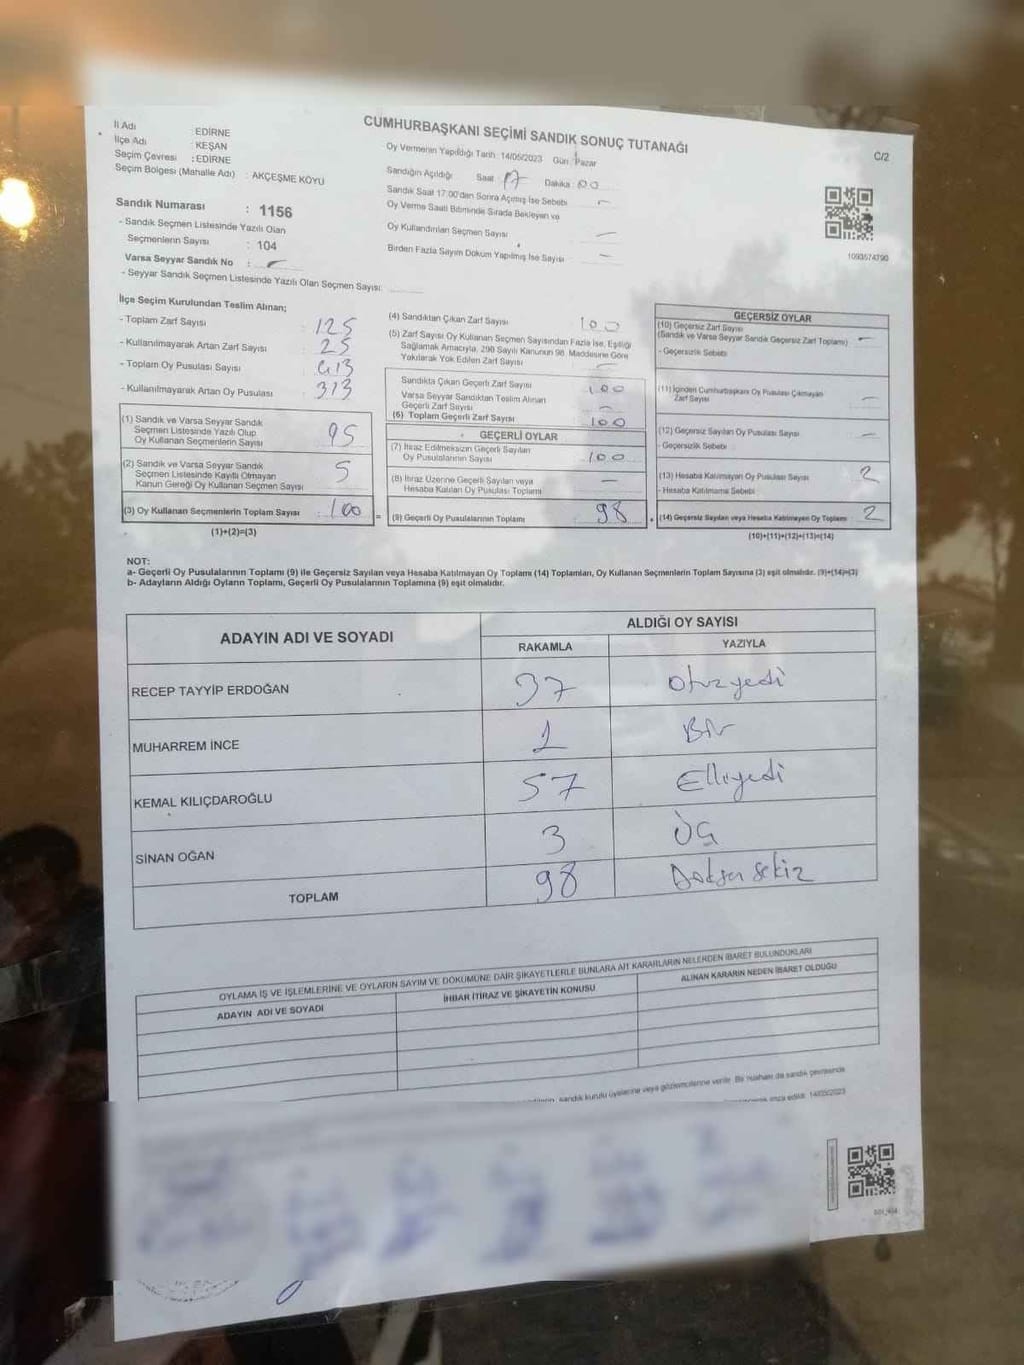 CUMHURBAŞKANI SEÇİMİ SANDIK SONUÇ TUTANAĞI
C/2
İl Adı : EDİRNE
İlçe Adı : KEŞAN
Seçim Çevresi : EDİRNE
Seçim Bölgesi (Mahalle Adı) : AKÇEŞME KÖYÜ
Sandık Numarası : 1156
- Sandık Seçmen Listesinde Yazılı Olan
Seçmenlerin Sayısı : 104
Varsa Seyyar Sandık No : –
- Seyyar Sandık Seçmen Listesinde Yazılı Olan Seçmen Sayısı:
Oy Vermenin Yapıldığı Tarih : 14/05/2023 Gün : Pazar
Sandığın Açıldığı Saat : 17 Dakika : 00
Sandık Saat 17:00'dan Sonra Açılmış İse Sebebi –
Oy Verme Saati Bitiminde Sırada Bekleyen ve
Oy Kullandırılan Seçmen Sayısı –
Birden Fazla Sayım Döküm Yapılmış İse Sayısı –
1093574790
İlçe Seçim Kurulundan Teslim Alınan;
- Toplam Zarf Sayısı : 125
- Kullanılmayarak Artan Zarf Sayısı : 25
- Toplam Oy Pusulası Sayısı : 413
- Kullanılmayarak Artan Oy Pusulası : 313
(1) Sandık ve Varsa Seyyar Sandık
Seçmen Listesinde Yazılı Olup
Oy Kullanan Seçmenlerin Sayısı : 95
(2) Sandık ve Varsa Seyyar Sandık
Seçmen Listesinde Kayıtlı Olmayan
Kanun Gereği Oy Kullanan Seçmen Sayısı : 5
(3) Oy Kullanan Seçmenlerin Toplam Sayısı : 100 =
(1)+(2)=(3)
(4) Sandıktan Çıkan Zarf Sayısı : 100
(5) Zarf Sayısı Oy Kullanan Seçmen Sayısından Fazla İse, Eşitliği
Sağlamak Amacıyla, 298 Sayılı Kanunun 98. Maddesine Göre
Yakılarak Yok Edilen Zarf Sayısı –
Sandıkta Çıkan Geçerli Zarf Sayısı : 100
Varsa Seyyar Sandıktan Teslim Alınan
Geçerli Zarf Sayısı –
(6) Toplam Geçerli Zarf Sayısı : 100
GEÇERLİ OYLAR
(7) İtiraz Edilmeksizin Geçerli Sayılan
Oy Pusulalarının Sayısı : 100
(8) İtiraz Üzerine Geçerli Sayılan veya
Hesaba Katılan Oy Pusulası Toplamı –
(9) Geçerli Oy Pusulalarının Toplamı : 98 +
GEÇERSİZ OYLAR
(10) Geçersiz Zarf Sayısı
(Sandık ve Varsa Seyyar Sandık Geçersiz Zarf Toplamı) –
- Geçersizlik Sebebi :
(11) İçinden Cumhurbaşkanı Oy Pusulası Çıkmayan
Zarf Sayısı –
(12) Geçersiz Sayılan Oy Pusulası Sayısı –
- Geçersizlik Sebebi :
(13) Hesaba Katılmayan Oy Pusulası Sayısı 2
- Hesaba Katılmama Sebebi
(14) Geçersiz Sayılan veya Hesaba Katılmayan Oy Toplamı : 2
(10)+(11)+(12)+(13)=(14)
NOT:
a- Geçerli Oy Pusulalarının Toplamı (9) ile Geçersiz Sayılan veya Hesaba Katılmayan Oy Toplamı (14) Toplamları, Oy Kullanan Seçmenlerin Toplam Sayısına (3) eşit olmalıdır. (9)+(14)=(3)
b- Adayların Aldığı Oyların Toplamı, Geçerli Oy Pusulalarının Toplamına (9) eşit olmalıdır.
ADAYIN ADI VE SOYADI
ALDIĞI OY SAYISI
RAKAMLA YAZIYLA
RECEP TAYYİP ERDOĞAN 37 Otuzyedi
MUHARREM İNCE 1 Bir
KEMAL KILIÇDAROĞLU 57 Elliyedi
SİNAN OĞAN 3 Üç
TOPLAM 98 Doksan sekiz
OYLAMA İŞ VE İŞLEMLERİNE VE OYLARIN SAYIM VE DÖKÜMÜNE DAİR ŞİKAYETLERLE BUNLARA AİT KARARLARIN NELERDEN İBARET BULUNDUKLARI
ADAYIN ADI VE SOYADI
İHBAR İTİRAZ VE ŞİKAYETİN KONUSU
ALINAN KARARIN NEDEN İBARET OLDUĞU
sandık kurulu üyelerine veya gözlemcilerine verilir. Bir nüshası da sandık çevresinde
imza edildi. 14/05/2023